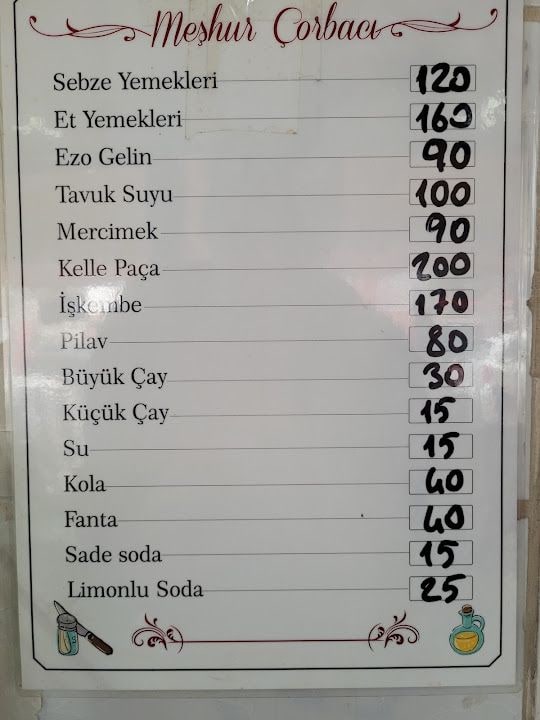 Meşhur Çorbacı
Sebze Yemekleri 120
Et Yemekleri 160
Ezo Gelin 90
Tavuk Suyu 100
Mercimek 90
Kelle Paça 200
İşkembe 170
Pilav 80
Büyük Çay 30
Küçük Çay 15
Su 15
Kola 40
Fanta 40
Sade soda 15
Limonlu Soda 25